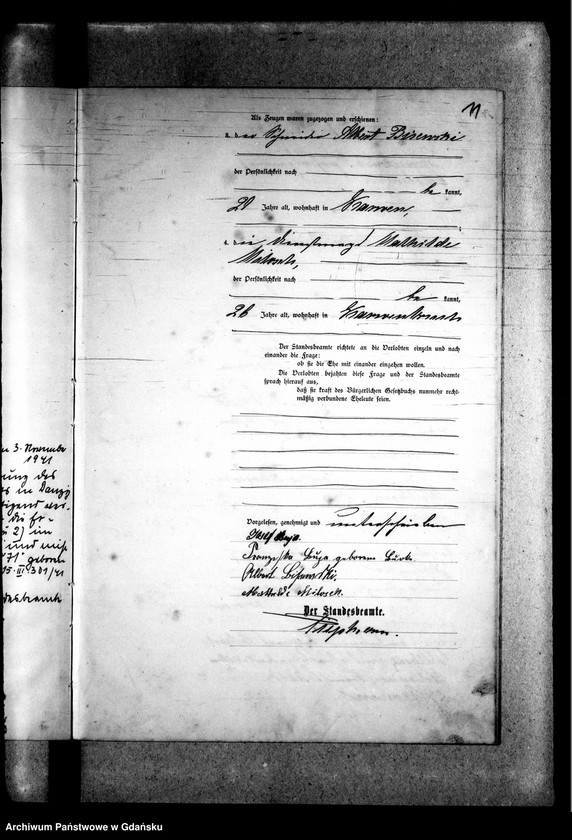 11
Als Zeugen waren zugezogen und erschienen:
der Schneider Albert Bisewski
der Persönlichkeit nach
be kannt,
20 Jahre alt, wohnhaft in Karwen,
die Dienstmagd Mathilde
Milosch,
der Persönlichkeit nach
be kannt,
26 Jahre alt, wohnhaft in Karwenbruch
Der Standesbeamte richtete an die Verlobten einzeln und nach
einander die Frage:
ob sie die Ehe mit einander eingehen wollen.
Die Verlobten bejahten diese Frage und der Standesbeamte
sprach hierauf aus,
daß sie kraft des Bürgerlichen Gesetzbuchs nunmehr recht-
mäßig verbundene Eheleute seien.
Vorgelesen, genehmigt und unterschrieben
Josef
geborene
Albert
Mathilde Milosch.
Der Standesbeamte.
3. November
1941
ung des
in Danzig
2) in
und
71 geboren
15. III 301/41
desbeamte
Archiwum Państwowe w Gdańsku